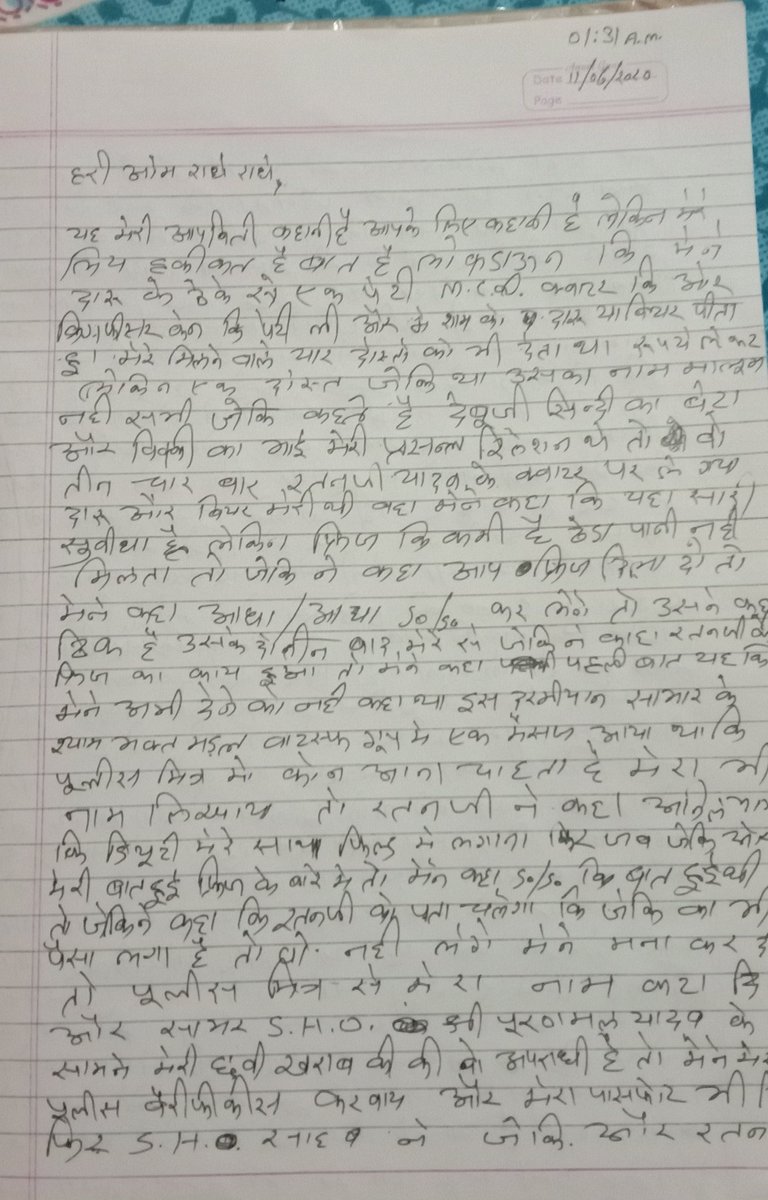 01:31 A.m.
Date 11/06/2020
Page
हरी ओम राधे राधे,
यह मेरी आपबिती कहानी है आपके लिए कहानी है लेकिन मेरे
लिय हकीकत है बात है लोकडाऊन कि मेने
दारू के ठेके से एक पेटी क्वाटर कि और
किंगफीसर केन कि पेटी ली और मे शाम को दारू या बियर पीता
हु। मेरे मिलने वाले यार दोस्तो को भी देता था रूपये लेकर
लेकिन एक दोस्त जेकि था उसका नाम मालुम
नही सभी जेकि कहते है देबूजी सिन्धी का बेटा
और विक्की का भाई मेरी प्रसन्ल रिलेशन थे तो वो
तीन चार बार रतनजी यादव के क्वाटर पर ले गया
दारू और बियर मेरी थी वहा मेने कहा कि यहा सारी
सुवीधा है लेकिन फ्रिज कि कमी है ठंडा पानी नही
मिलता तो जेकि ने कहा आप फ्रिज दिला दो तो
मेने कहा आधा/आधा 50/50 कर लेंगे तो उसने कहा
ठिक है उसके दो तीन बाद मेरे से जेकि ने कहा रतनजी के
फ्रिज का काय हुआ तो मेने कहा पहली बात यह कि
मेने अभी देने को नही कहा था इस दरमीयान सामर के
श्याम भक्त मडल वाटस्फ ग्रूप मे एक मैसज आया था कि
पूलीस मित्र मे कोन आना चाहता है मेरा भी
नाम लिखाय तो रतनजी ने कहा
कि डियूटी मेरे साथ फिल्ड मे लगाना फिर जब जेकि और
मेरी बात हुई फ्रिज के बारे मे तो मेने कहा 50/50 कि बात हुई थी
तो जेकि ने कहा कि रतनजी को पता चलेगा कि जेकि का भी
पैसा लगा है तो वो नही लेंगे मेने मना कर दि
तो पूलीस मित्र से मेरा नाम कटा दि
और सामर S.H.O. श्री पूरणमल यादव के
सामने मेरी छवी खराब की की वो अपराधी है तो मेने मेरा
पूलीस वैरीफीकीसन करवाय और मेरा पासपोट भी
फिर S.H.O. साहब ने जेकि और रतन